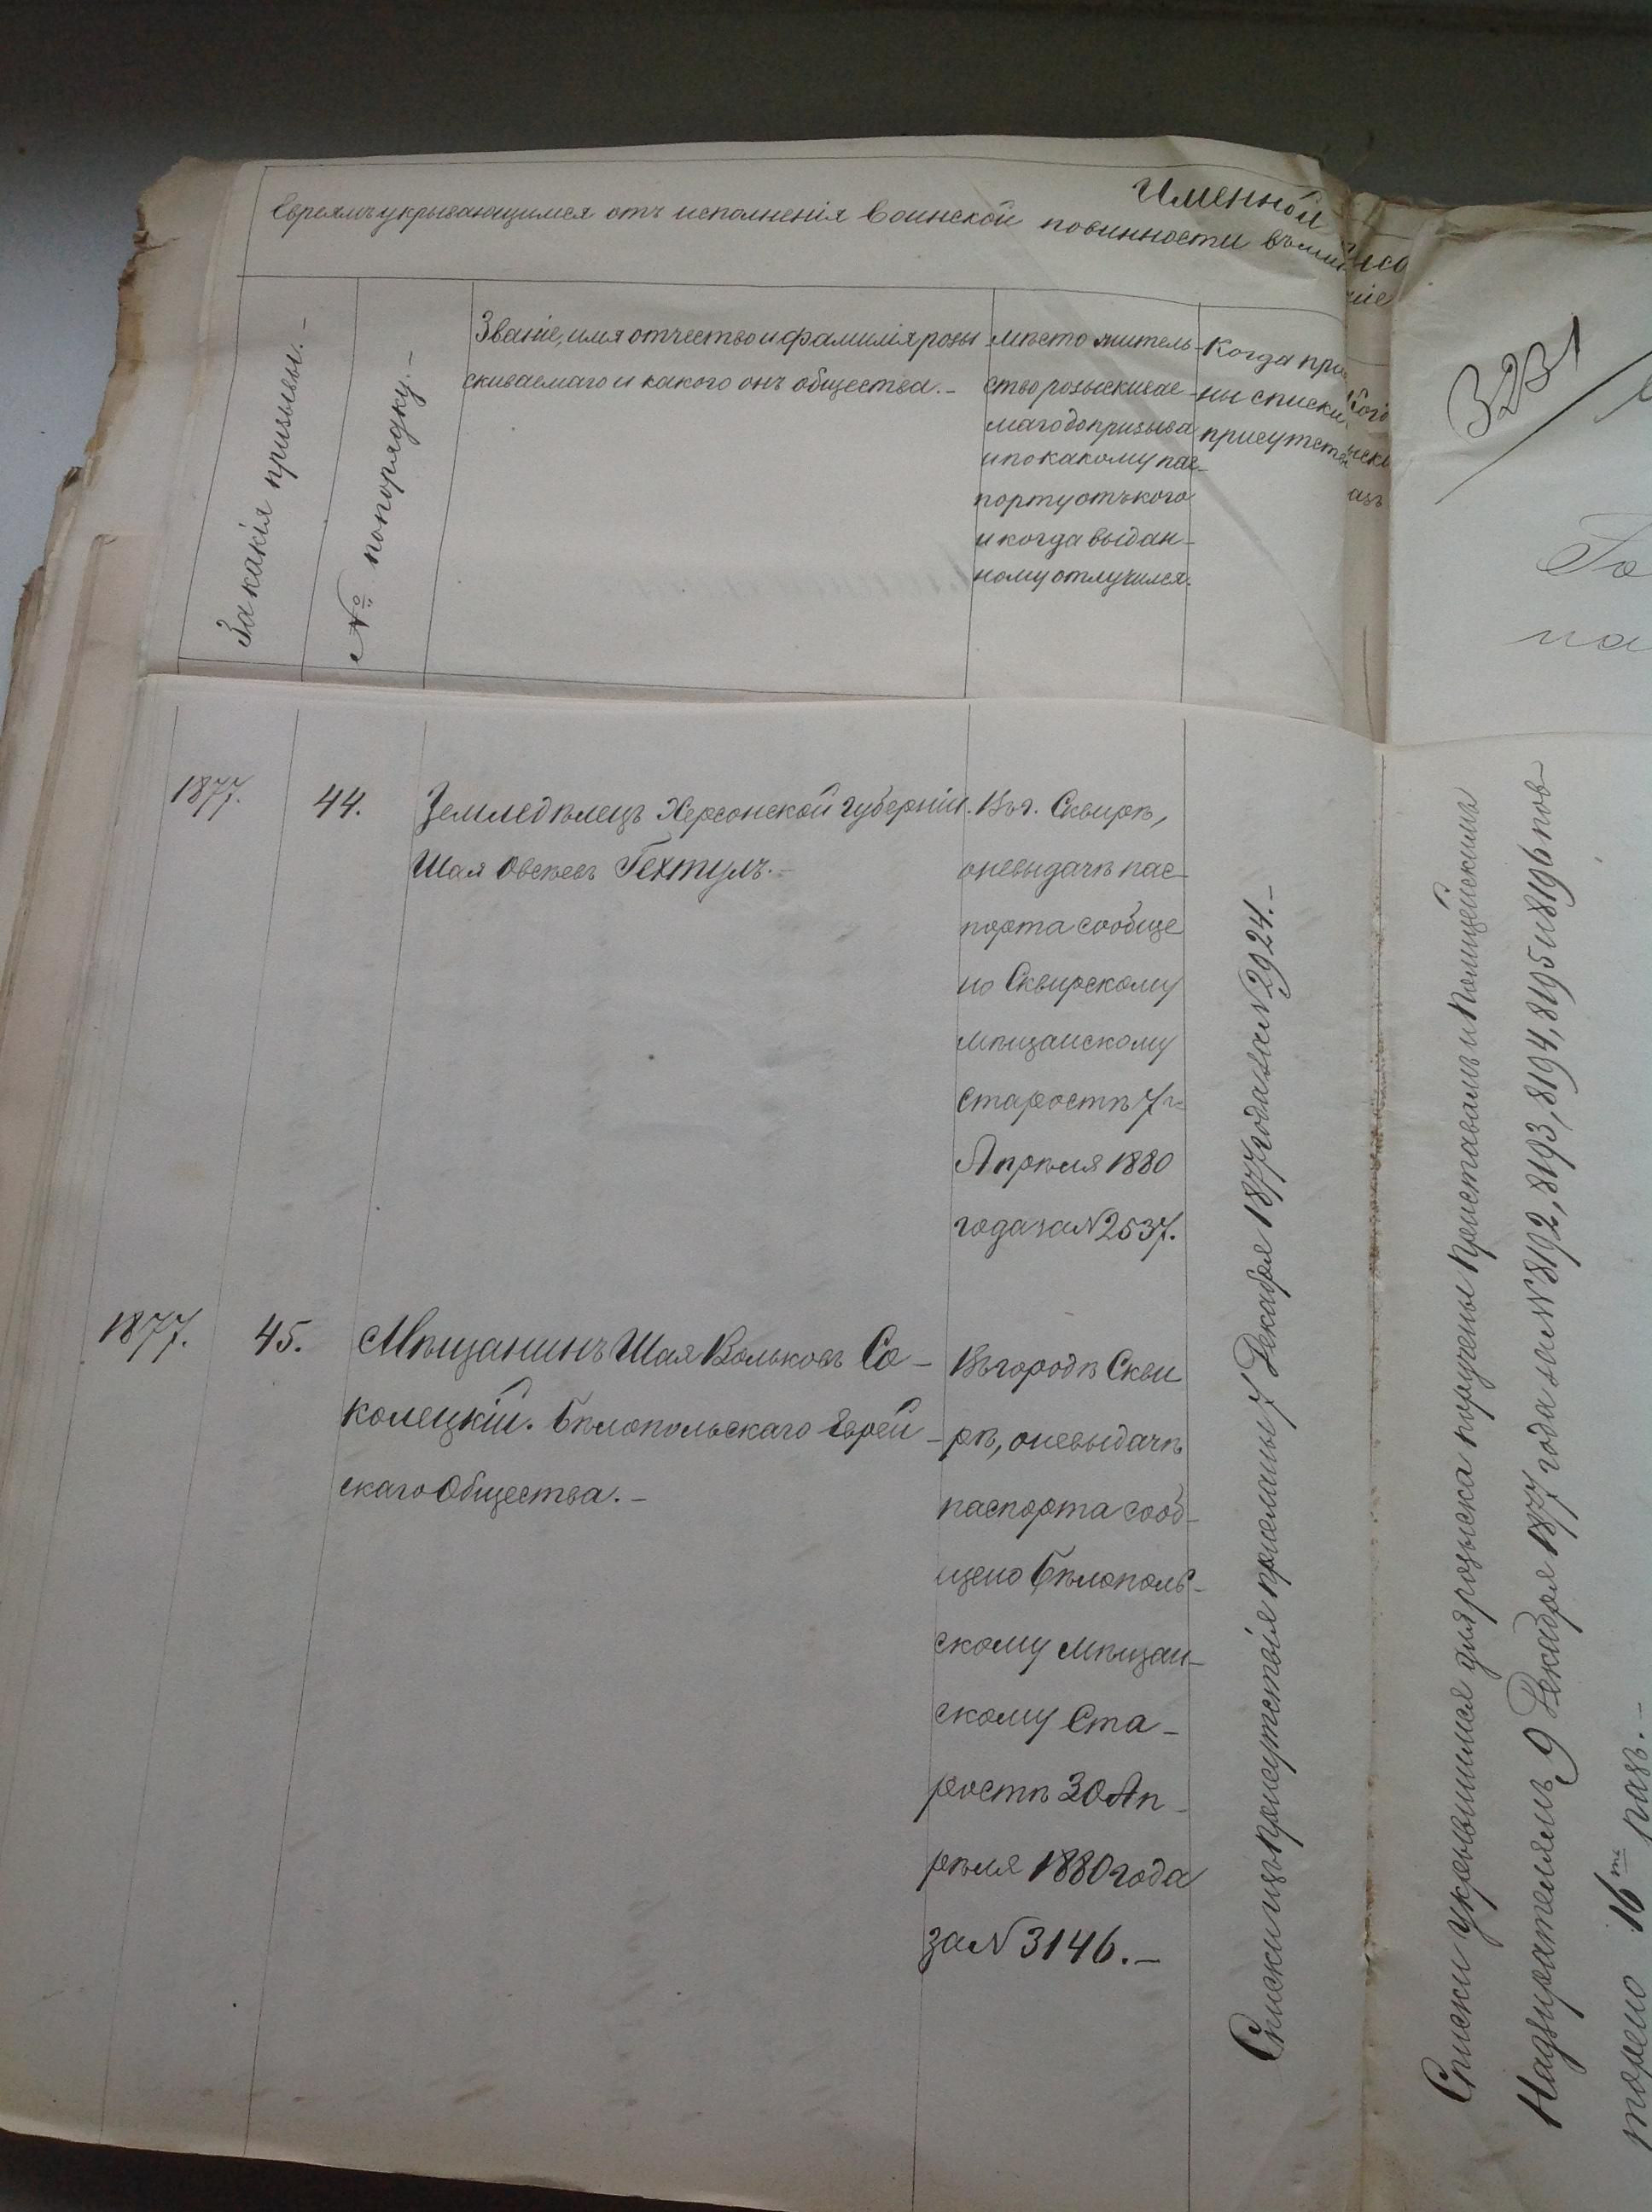 Именной
Евреямъ укрывающимся отъ исполненія воинской повинности
За какія призывы. –
№ по порядку. –
Званіе, имя отчество и фамилія розы
скиваемаго и какого онъ общества. –
Мѣсто житель-
ство розыскивае-
маго до призыва
и по какому пас-
порту отъ кого
и когда выдан-
ному отлучился.
Когда при
ны списки
присутств
1877.
44.
Земледѣлецъ Херсонской губерніи.
Шая Овсѣевъ Гехтулъ. –
Въ г. Сквирѣ,
о невыдачѣ пас-
порта сообще
но Сквирскому
мѣщанскому
старостѣ 7го
Апрѣля 1880
года за № 2537.
1877.
45.
Мѣщанинъ Шая Вольковъ Со-
колецкій. Бѣлопольскаго Еврей-
скаго Общества. –
Въ городѣ Скви
рѣ, о невыдачѣ
паспорта сооб-
щено Бѣлополь-
скому мѣщан-
скому Ста-
ростѣ 30 Ап-
рѣля 1880 года
за № 3146. –
Списки изъ Присутствія присланы 7 Декабря 1877 года за № 2924. –
Списки укрывшимся для розыска поручены Приставамъ и Полицейскимъ
Надзирателямъ 9 Декабря 1877 года за № 8192, 8193, 8194, 8195 и 8196 пов-
торено 16ть разъ. –
3231